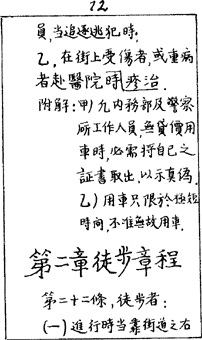 12
員,當追逐逃犯時.
乙,在街上受傷者,或重病
者赴醫院時疹治.
附解:甲)凡内務部及警察
廠工作人員,無貸價用
車時,必需將自己之
証書取出,以示真偽.
乙)用車只限於極短
時间,不准無故用車.
第二章徒步章程
第二十二條,徒步者:
(一)進行時當靠街道之右